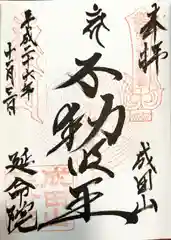 奉拝
成田山
不動明王
平成二十六年
十一月三日
延命院